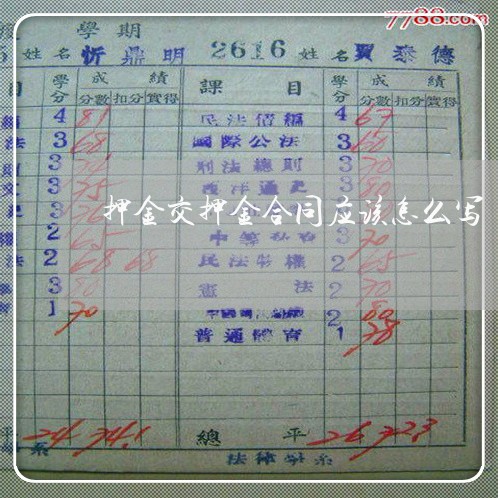 7788.com
學期
姓名 忻鼎明 2616 姓名 賈泰德
目 學分 成績 課目 學分 成績
分數 扣分 實得 分數 扣分 實得
4 81 民法債編 4 67
法 3 68 國際公法 3 60
3 刑法總則 3 70
3 75 西洋通史 3 80
押金交押金合同应该怎么写
2 65 3 70
法 2 68 68 民法物權 2 65
3 80 憲法 2 70
1 70 2 80
普通體育 1 78
平 24 74.1 總平 26 72.3
系 法律學系